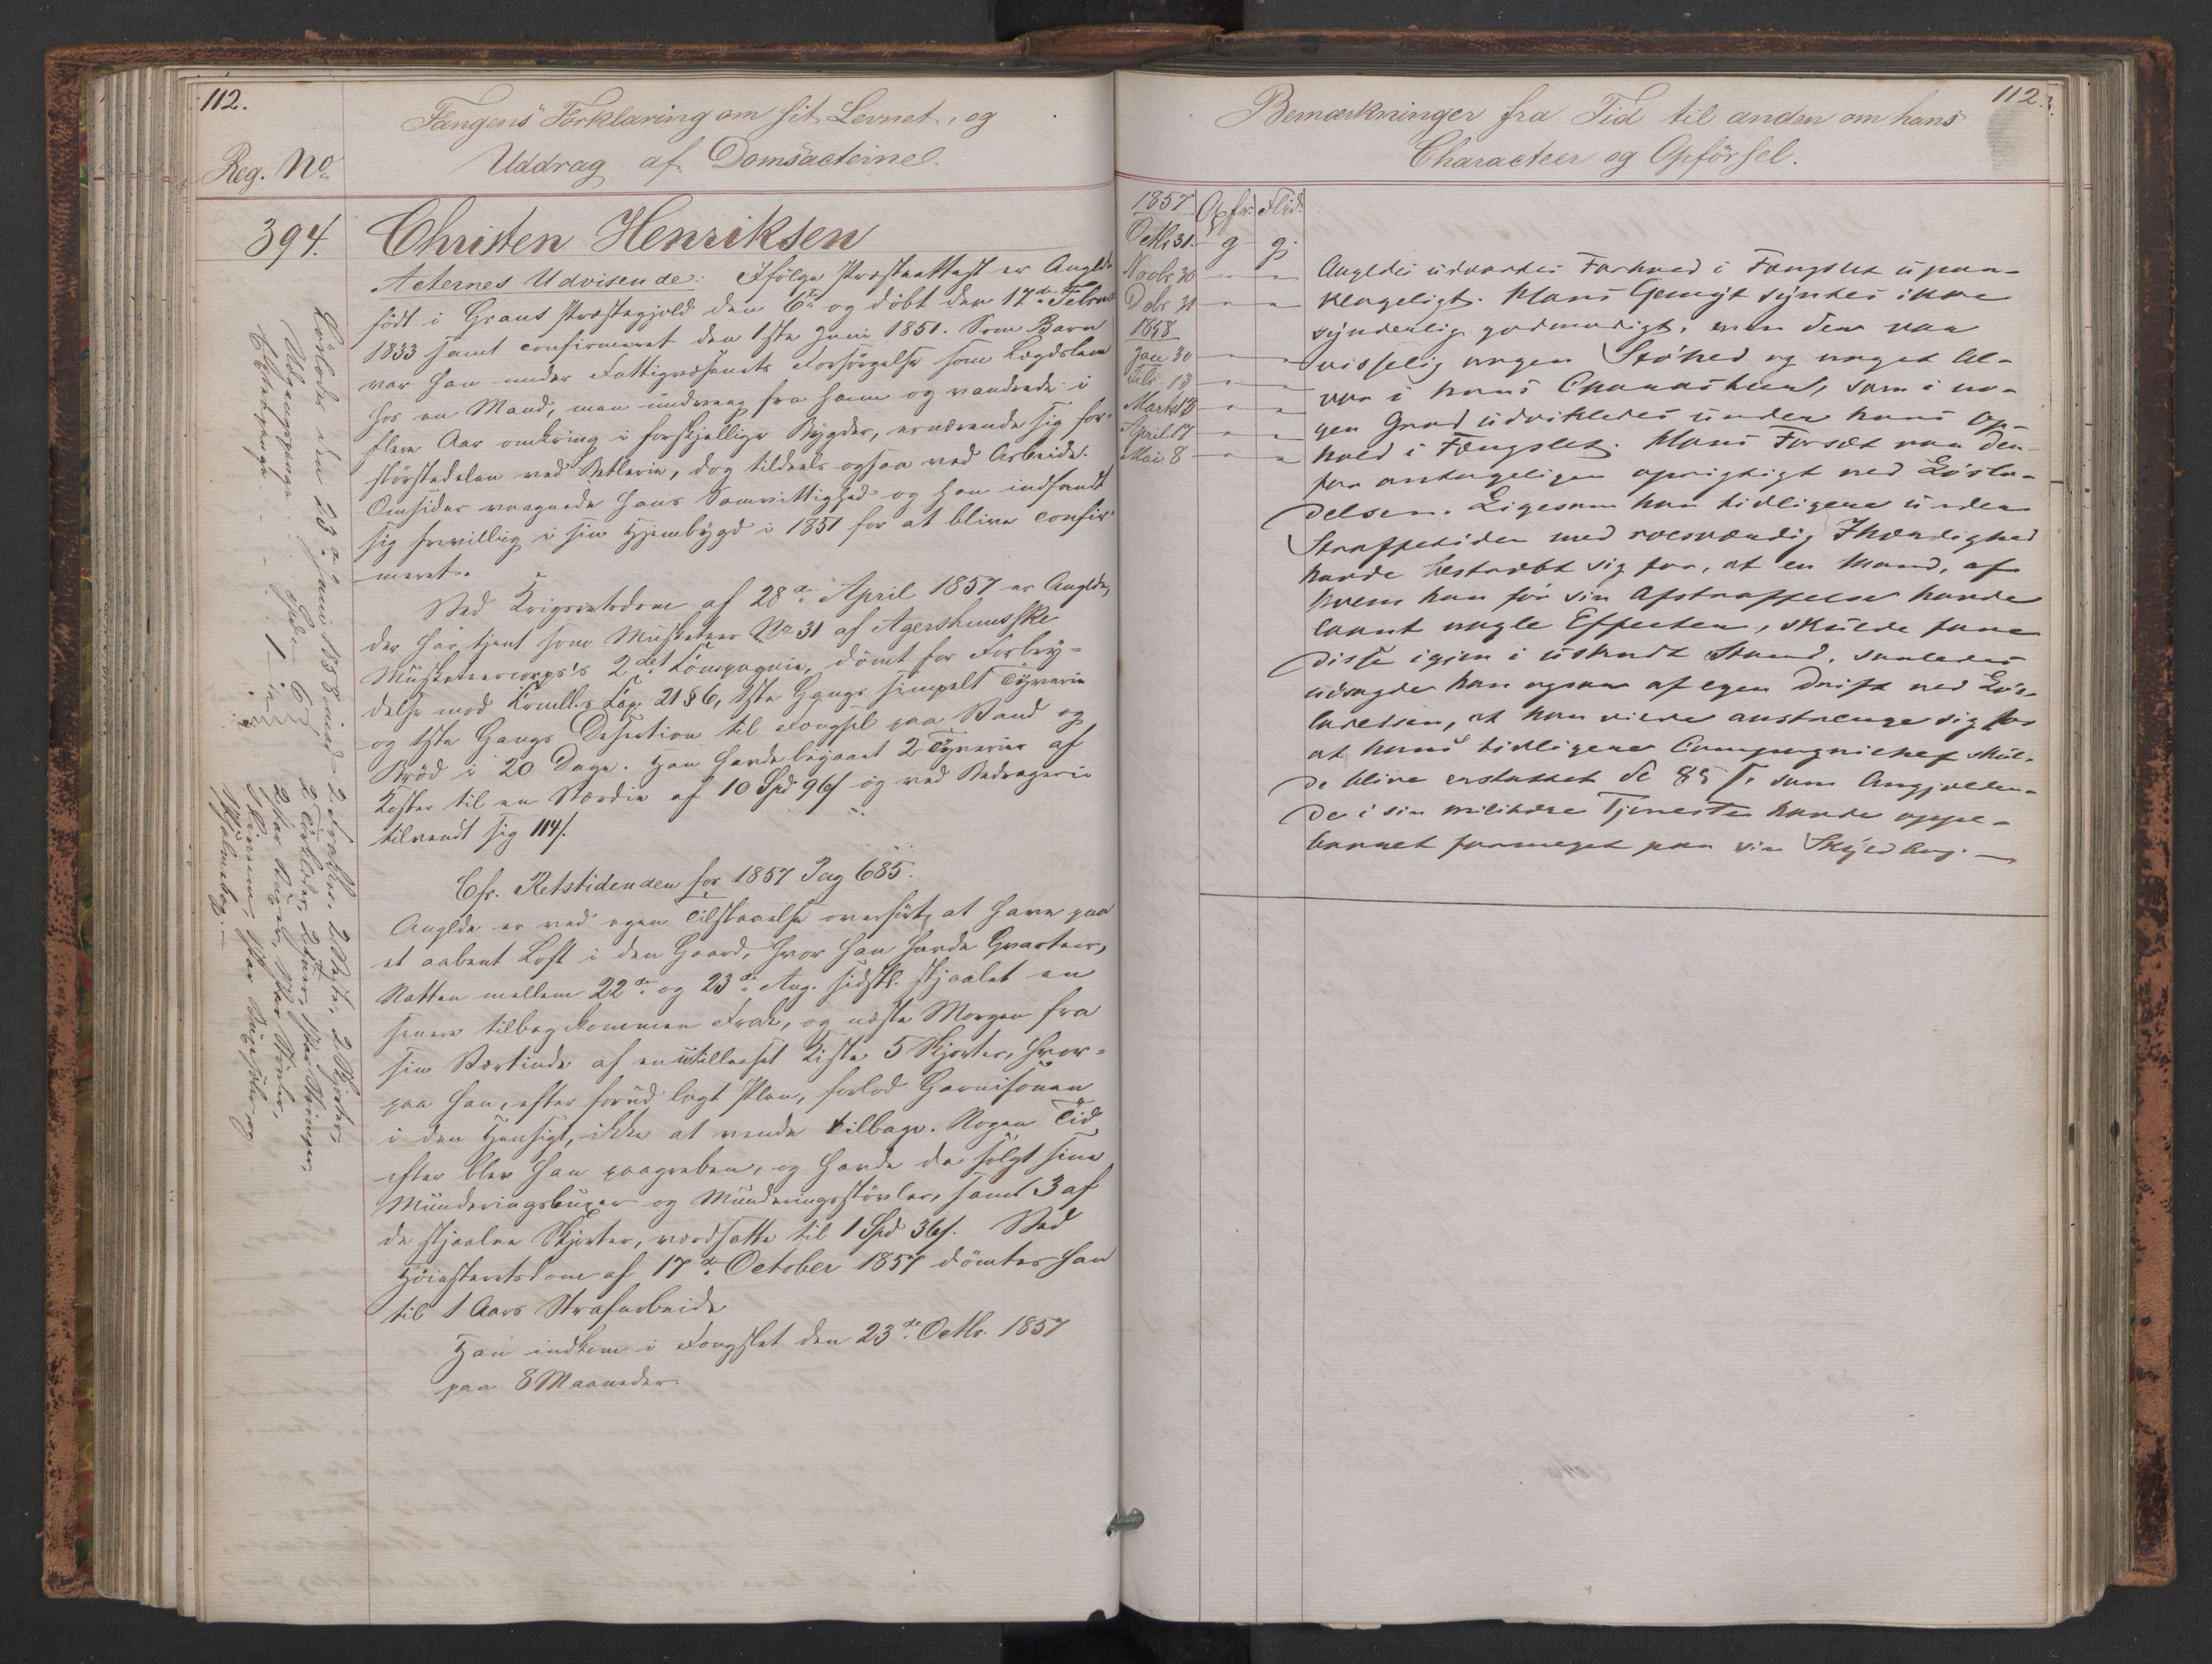 112.
Fangens Forklaring om sit Levnet, og
Uddrag af Domsacterne.
Reg. No
394.
Christen Henriksen
Acternes Udvisende: Ifølge Præsteattest er Anglde
født i Grans Præstegjeld den 6te og døbt den 17de Februar
1833 samt confirmeret den 1ste Juni 1851. Som Barn
var han under Fattigvæsenets Forsørgelse som Lægdslem
hos en Mand, men undveeg fra ham og vandrede i
flere Aar omkring i forskjellige Bygder, ernærende sig for
størstedelen ved Betlerie, dog tildeels ogsaa ved Arbeide.
Omsider vaagnede hans Samvittighed og han indfandt
sig frivillig i sin Hjembygd i 1851 for at blive confir-
meret.
Ved Krigsretsdom af 28de April 1857 er Anglde,
der har tjent som Musketeer No 31 af Agershuusske
Musketeercorps's 2det Kompagnie, dømt for Forbry-
delse mod Krmll.s Kap. 21 § 6, 1ste Gangs simpelt Tyverie
og 1ste Gangs Desertion til Fængsel paa Vand og
Brød i 20 Dage. Han havde begaaet 2 Tyverier af
Koster til en Værdie af 10 Spd 96 s og ved Bedragerie
tilvendt sig 114 s.
Cfr. Retstidenden for 1857 Pag 685.
Anglde er ved egen Tilstaaelse overført, at have paa
et aabent Loft i den Gaard, hvor han havde Qvarteer,
Natten mellem 22de og 23de Aug. sidstl. stjaalet en
senere tilbagekommen Frak, og næste Morgen fra
sin Værtinde af en utillaaset Kiste 5 Skjorter, hvor-
paa han, efter forud lagt Plan, forlod Garnisonen
i den Hensigt, ikke at vende tilbage. Nogen Tid
efter blev han paagreben, og havde da solgt sine
Munderingsbuxer og Munderingsstøvler, samt 3 af
de stjaalne Skjorter, værdsatte til 1 Spd 36 s. Ved
Høiesteretsdom af 17de October 1857 dømtes han
til 1 Aars Strafarbeide
Han indkom i Fængslet den 23de Octbr. 1857
paa 8 Maaneder.
Løslodes den 23de Juni 1858 med
Udgangspenge
2 Skjorter,
112.
Bemærkninger fra Tid til anden om hans
Characteer og Opførsel.
1857 Opfr. Flid.
Octb. 31. g g.
Novbr 30 " "
Dcbr 31 " "
1858
Jan 30 " "
Febr. 13 " "
Marts 13 " "
April 17 " "
Mai 8 " "
Angldes udvortes Forhold i Fængslet upaa-
klageligt. Hans Gemyt syntes ikke
synderlig godmodigt, men der var
visselig nogen Støhed og noget Al-
vor i hans Charakteer, som i no-
gen Grad udvikledes under hans Op-
hold i Fængslet. Hans Forsæt var der-
for antageligen oprigtigt ved Løsla-
delsen. Ligesom han tidligere under
Straffetiden med rosværdig Ihærdighed
havde bestræbt sig for, at en Mand, af
hvem han før sin Afstraffelse havde
laant nogle Effecter, skulde faae
disse igjen i uskadt Stand, saaledes
udsagde han ogsaa af egen Drift ved Løs-
ladelsen, at han vilde anstrænge sig for
at hans tidligere Compagniechef skul-
de blive erstattet de 85 s, som Angjælden-
de i sin militære Tjeneste havde oppe-
baaret formeget paa sin Skyld